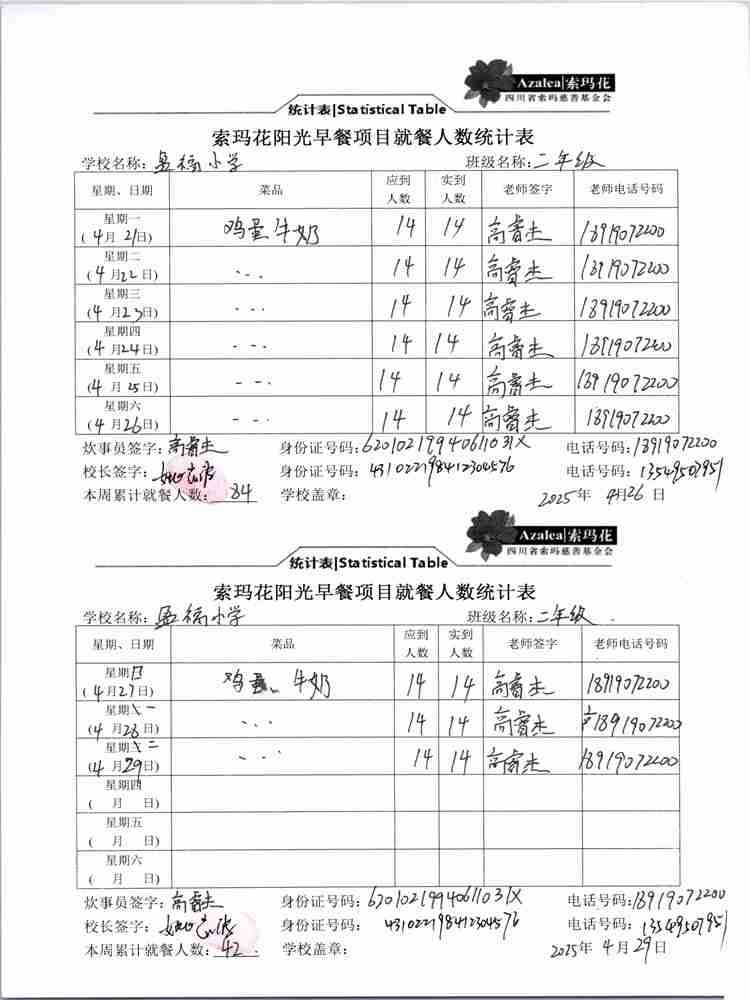 Azalea|索玛花
四川省索玛慈善基金会
统计表|Statistical Table
索玛花阳光早餐项目就餐人数统计表
学校名称：盈福小学 班级名称：二年级
星期、日期 菜品 应到人数 实到人数 老师签字 老师电话号码
星期一 (4月21日) 鸡蛋牛奶 14 14 高睿杰 18919072200
星期二 (4月22日) 、-、 14 14 高睿杰 18919072200
星期三 (4月23日) - - . 14 14 高睿杰 18919072200
星期四 (4月24日) - - . 14 14 高睿杰 18919072200
星期五 (4月25日) - - . 14 14 高睿杰 18919072200
星期六 (4月26日) - - . 14 14 高睿杰 18919072200
炊事员签字：高睿杰 身份证号码：62010219940611031X 电话号码：18919072200
校长签字： 身份证号码：431022198412304576 电话号码：13549507951
本周累计就餐人数：84 学校盖章： 2025年 4月26日
Azalea|索玛花
四川省索玛慈善基金会
统计表|Statistical Table
索玛花阳光早餐项目就餐人数统计表
学校名称：盈福小学 班级名称：二年级.
星期、日期 菜品 应到人数 实到人数 老师签字 老师电话号码
星期日 (4月27日) 鸡蛋、牛奶 14 14 高睿杰 18919072200
星期一 (4月28日) 、、、 14 14 高睿杰 18919072200
星期二 (4月29日) 、-、 14 14 高睿杰 18919072200
星期四 ( 月 日)
星期五 ( 月 日)
星期六 ( 月 日)
炊事员签字：高睿杰 身份证号码：62010219940611031X 电话号码：18919072200
校长签字： 身份证号码：431022198412304576 电话号码：13549507951
本周累计就餐人数：42. 学校盖章： 2025年 4月29日